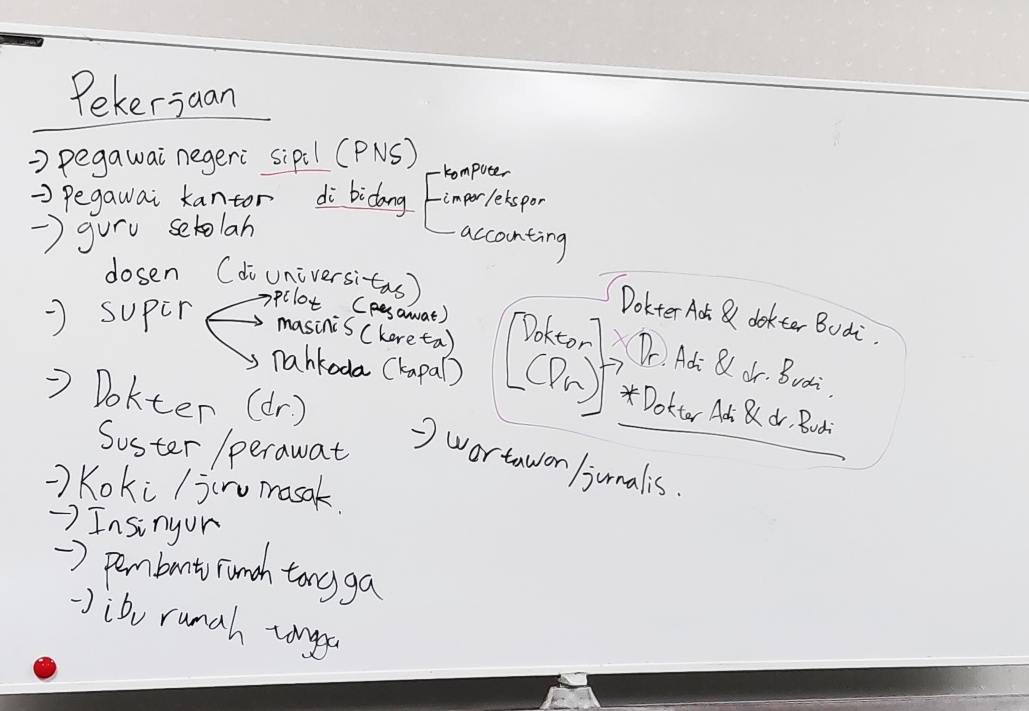 Pekerjaan
-> pegawai negeri sipil (PNS)
-> pegawai kantor di bidang
komputer
impor/ekspor
accounting
-> guru sekolah
dosen (di universitas)
-> supir
-> pilot (pesawat)
-> masinis (kereta)
-> nahkoda (kapal)
-> Dokter (dr.)
Suster/perawat
-> Koki/juru masak.
-> Insinyur
-> pembantu rumah tangga
-> ibu rumah tangga
[Doktor (Dr)] ->
Dokter Adi & dokter Budi.
x Dr. Adi & dr. Budi.
*Dokter Adi & dr. Budi
-> wartawan/jurnalis.